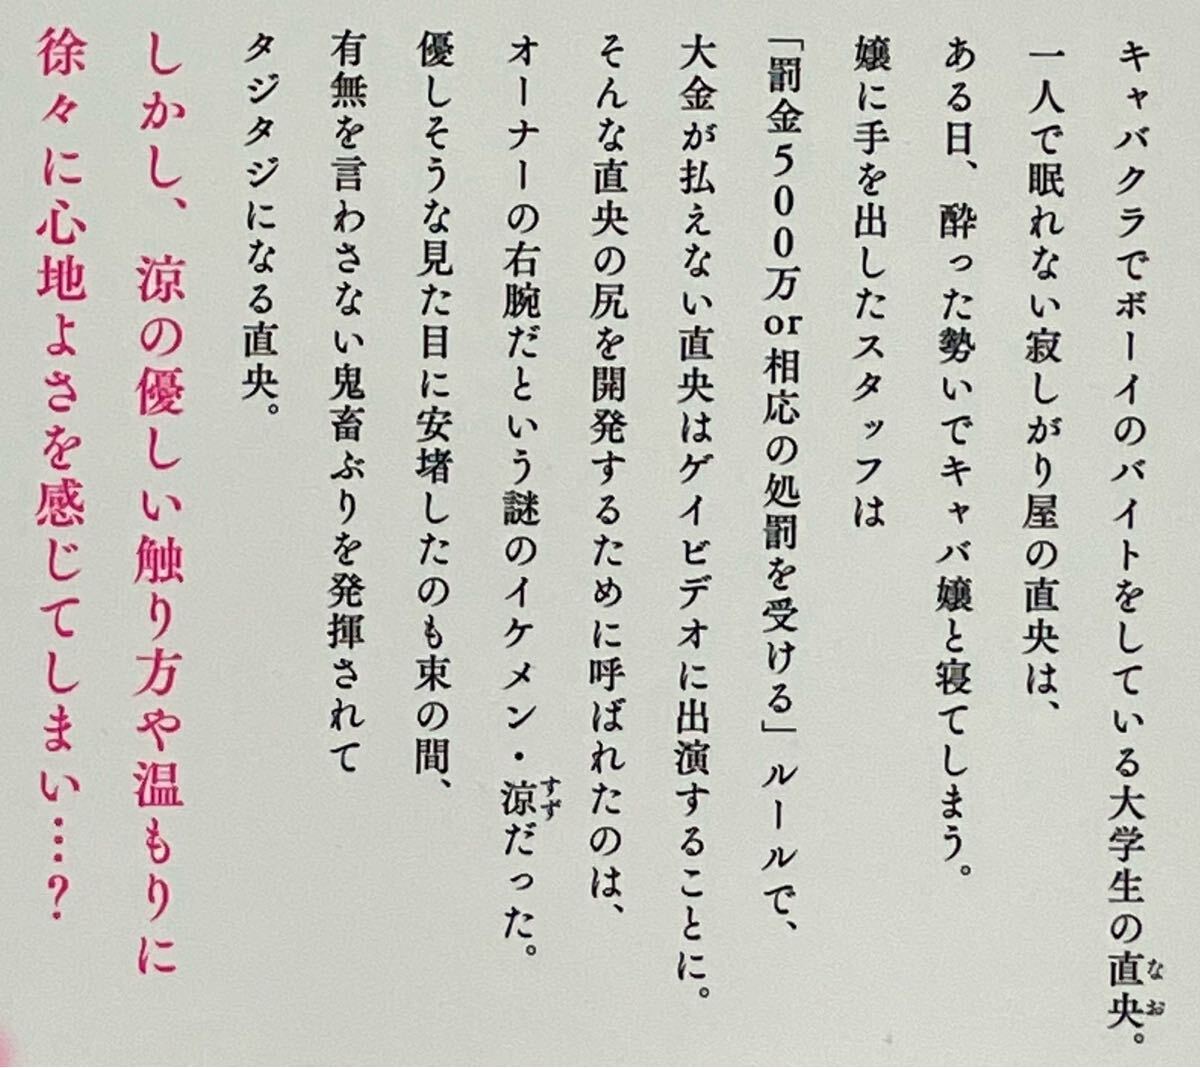 キャバクラでボーイのバイトをしている大学生の直央。
なお
一人で眠れない寂しがり屋の直央は、
ある日、酔った勢いでキャバ嬢と寝てしまう。
嬢に手を出したスタッフは
「罰金500万or相応の処罰を受ける」ルールで、
大金が払えない直央はゲイビデオに出演することに。
そんな直央の尻を開発するために呼ばれたのは、
オーナーの右腕だという謎のイケメン・涼だった。
すず
優しそうな見た目に安堵したのも束の間、
有無を言わさない鬼畜ぶりを発揮されて
タジタジになる直央。
しかし、涼の優しい触り方や温もりに
徐々に心地よさを感じてしまい…?